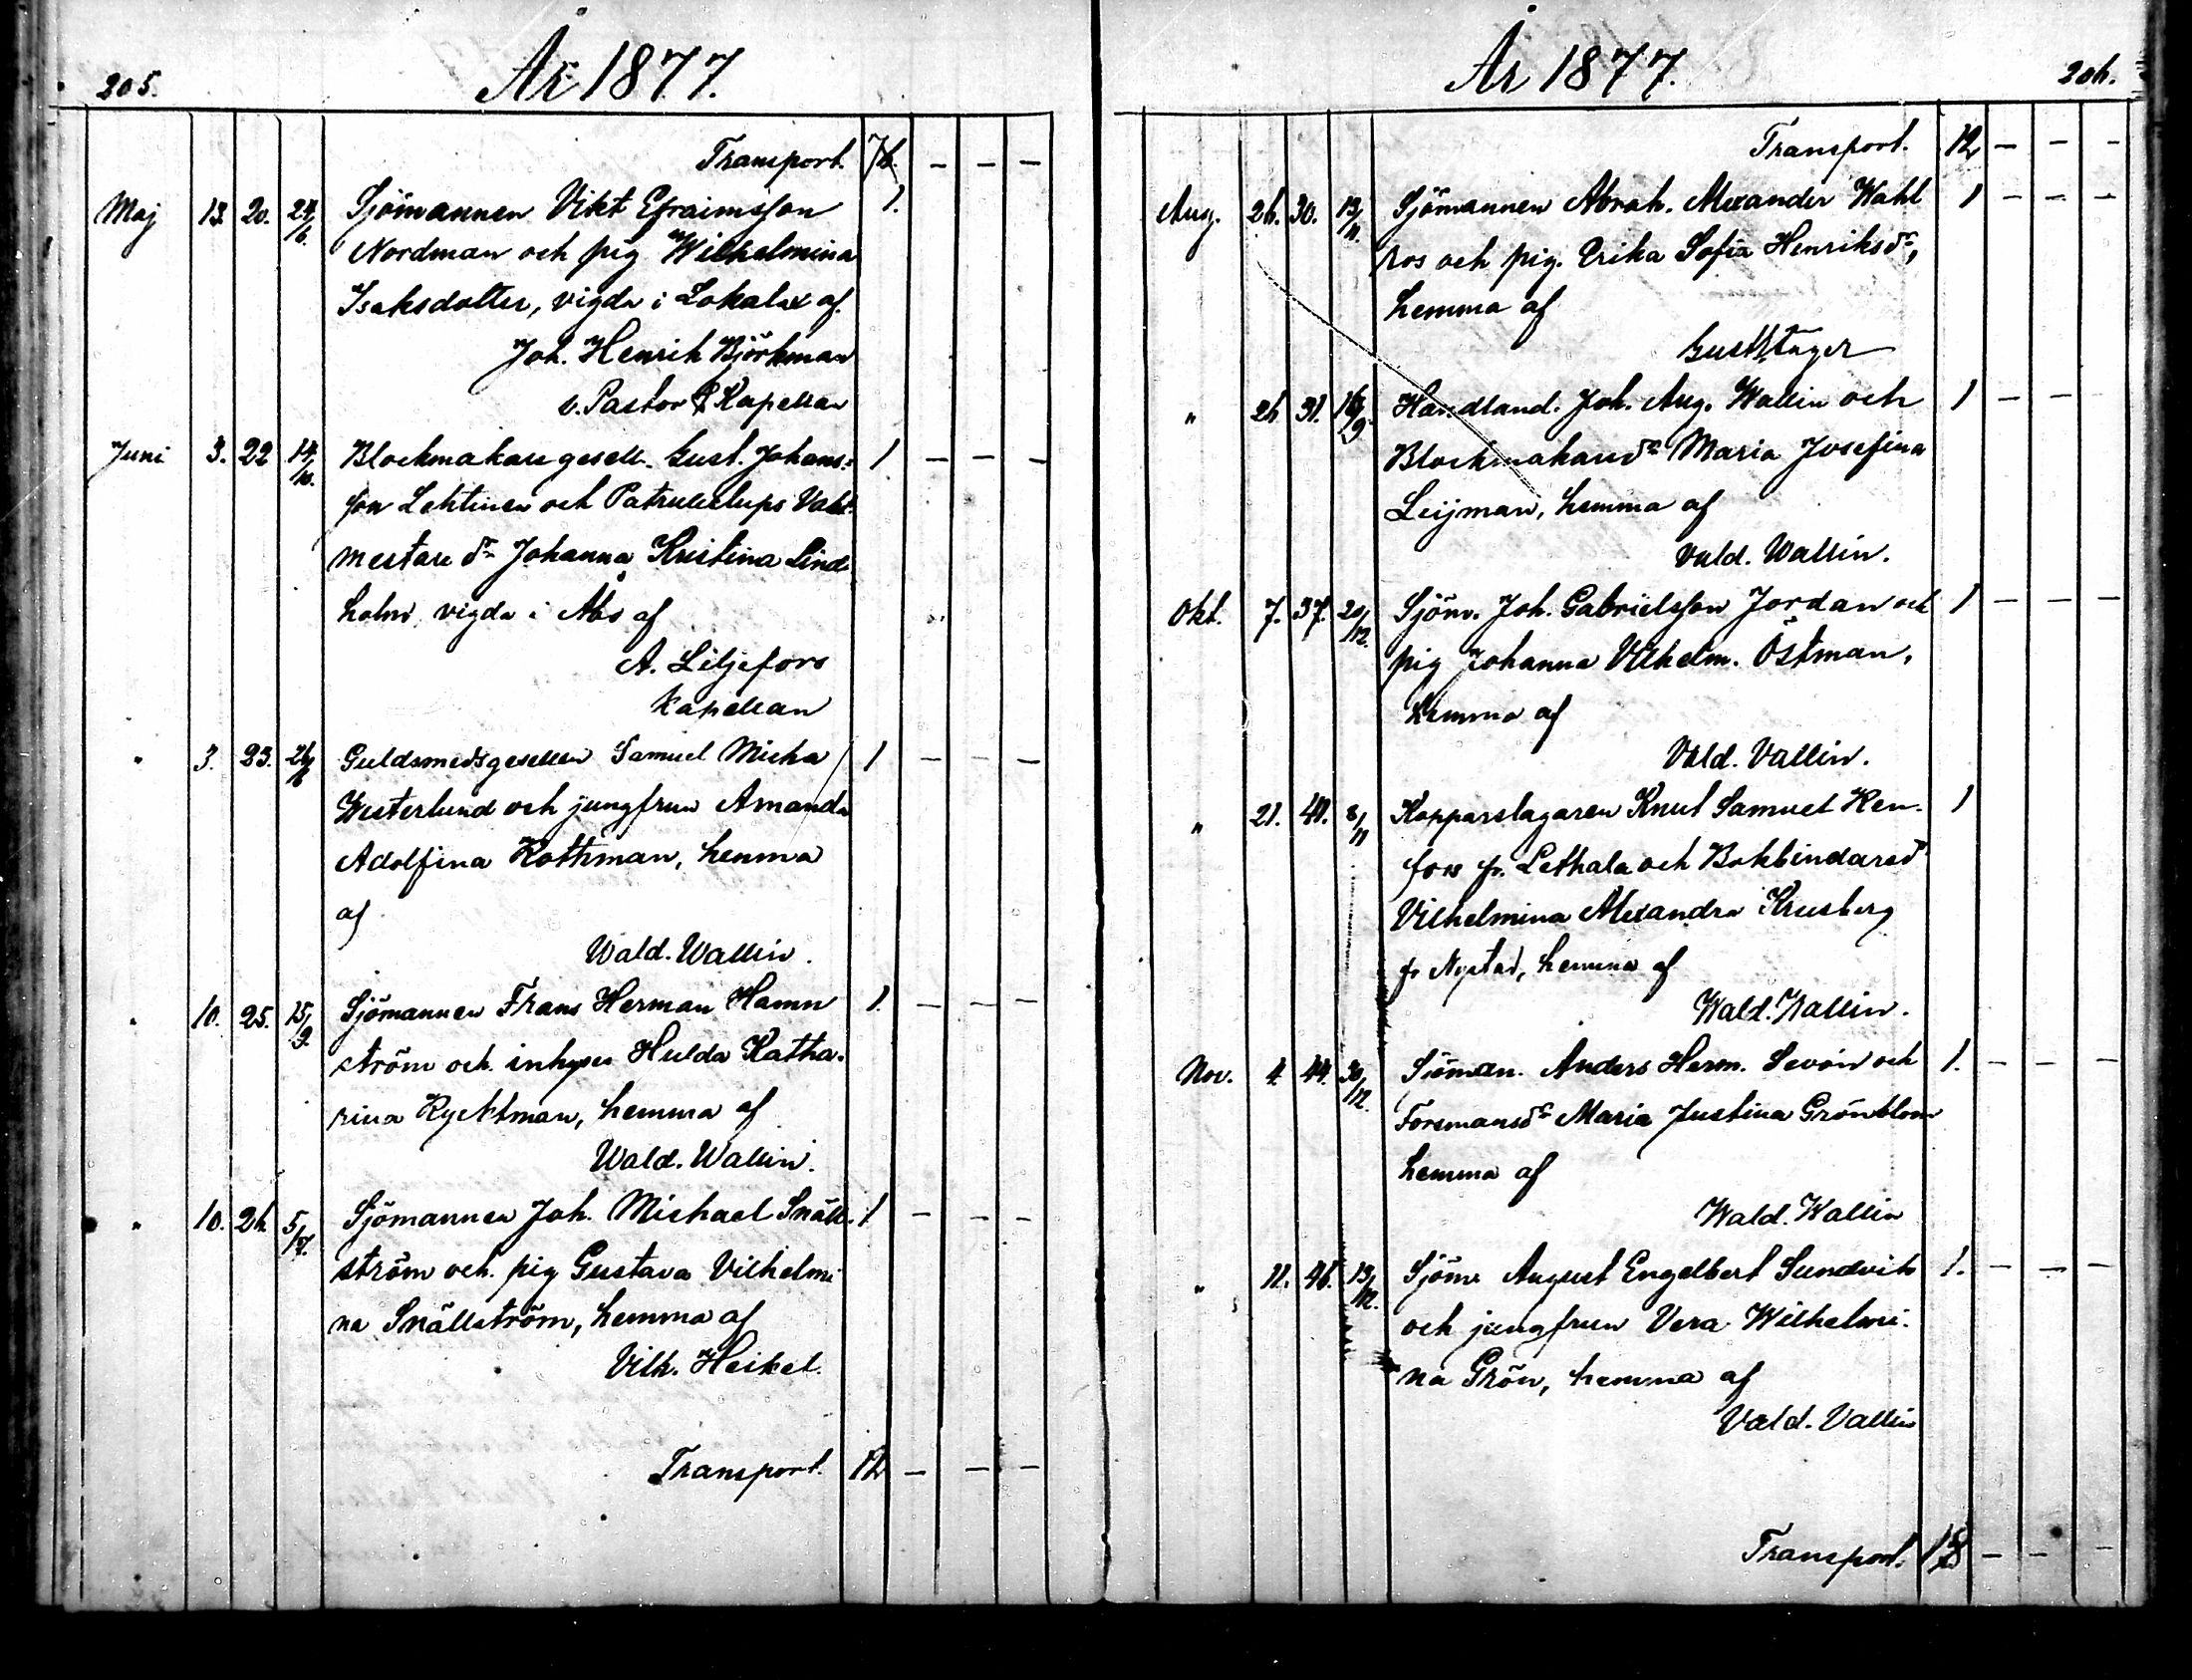 205.
År 1877.
Transport. 7
Maj 13. 20. 24/6. Sjömannen Vikt Efraimsson 1.
Nordman och pig Wilhelmina
Isaksdotter, vigda i Lokalax af
Joh. Henrik Björkman
v. Pastor & Kapellan
Juni 3. 22 14/10. Blockmakaregesell. Gust. Johans= 1
son Lehtinen och Vakt-
mestare dr Johanna Kristina Lind
holm, vigda i Åbo af
A. Liljefors
Kapellan
" 3. 23. Guldsmedsgesellen Samuel Micha 1
Westerlund och jungfrun Amanda
Adolfina Rothman, hemma
af
Wald. Wallin.
" 10. 25. 15/9. Sjömannen Frans Herman Hamn 1.
ström och inhyses Hulda Katha-
rina Rycktman, hemma af
Wald. Wallin.
" 10. 26 5/7. Sjömannen Joh. Michael Snäll- 1
ström och pig Gustava Vilhelmi
na Snällström, hemma af
Vilh. Heikel.
Transport. 12
År 1877.
206.
Transport. 12
Aug. 26. 30. 13/11. Sjömannen Abrah. Alexander Wahl 1
ros och pig. Erika Sofia Henriksdr,
hemma af
Gust
" 26 31. 16/9 Handland. Joh. Aug. Wallin och 1
Blockmakaredr Maria Josefina
Leijman, hemma af
Vald. Wallin.
Okt. 7. 37. 20/12. Sjöm. Joh. Gabrielsson Jordan och 1
pig Johanna Vilhelm. Östman,
hemma af
Vald. Vallin.
" 21. 41. 8/11 Kopparslagaren Knut Samuel Ren- 1
fors fr. Lethala och Bokbindaredr
Vilhelmina Alexandra Krusberg
fr Nystad, hemma af
Wald. Wallin.
Nov. 4 44. 30/12. Sjöman. Anders Herm. Sevón och 1.
Forsmansdr Maria Justina Grönblom
hemma af
Wald. Wallin
" 11. 46. 13/12. Sjöm August Engelbert Sundvik 1.
och jungfrun Vera Wilhelmi-
na Grön, hemma af
Vald. Vallin
Transport. 18